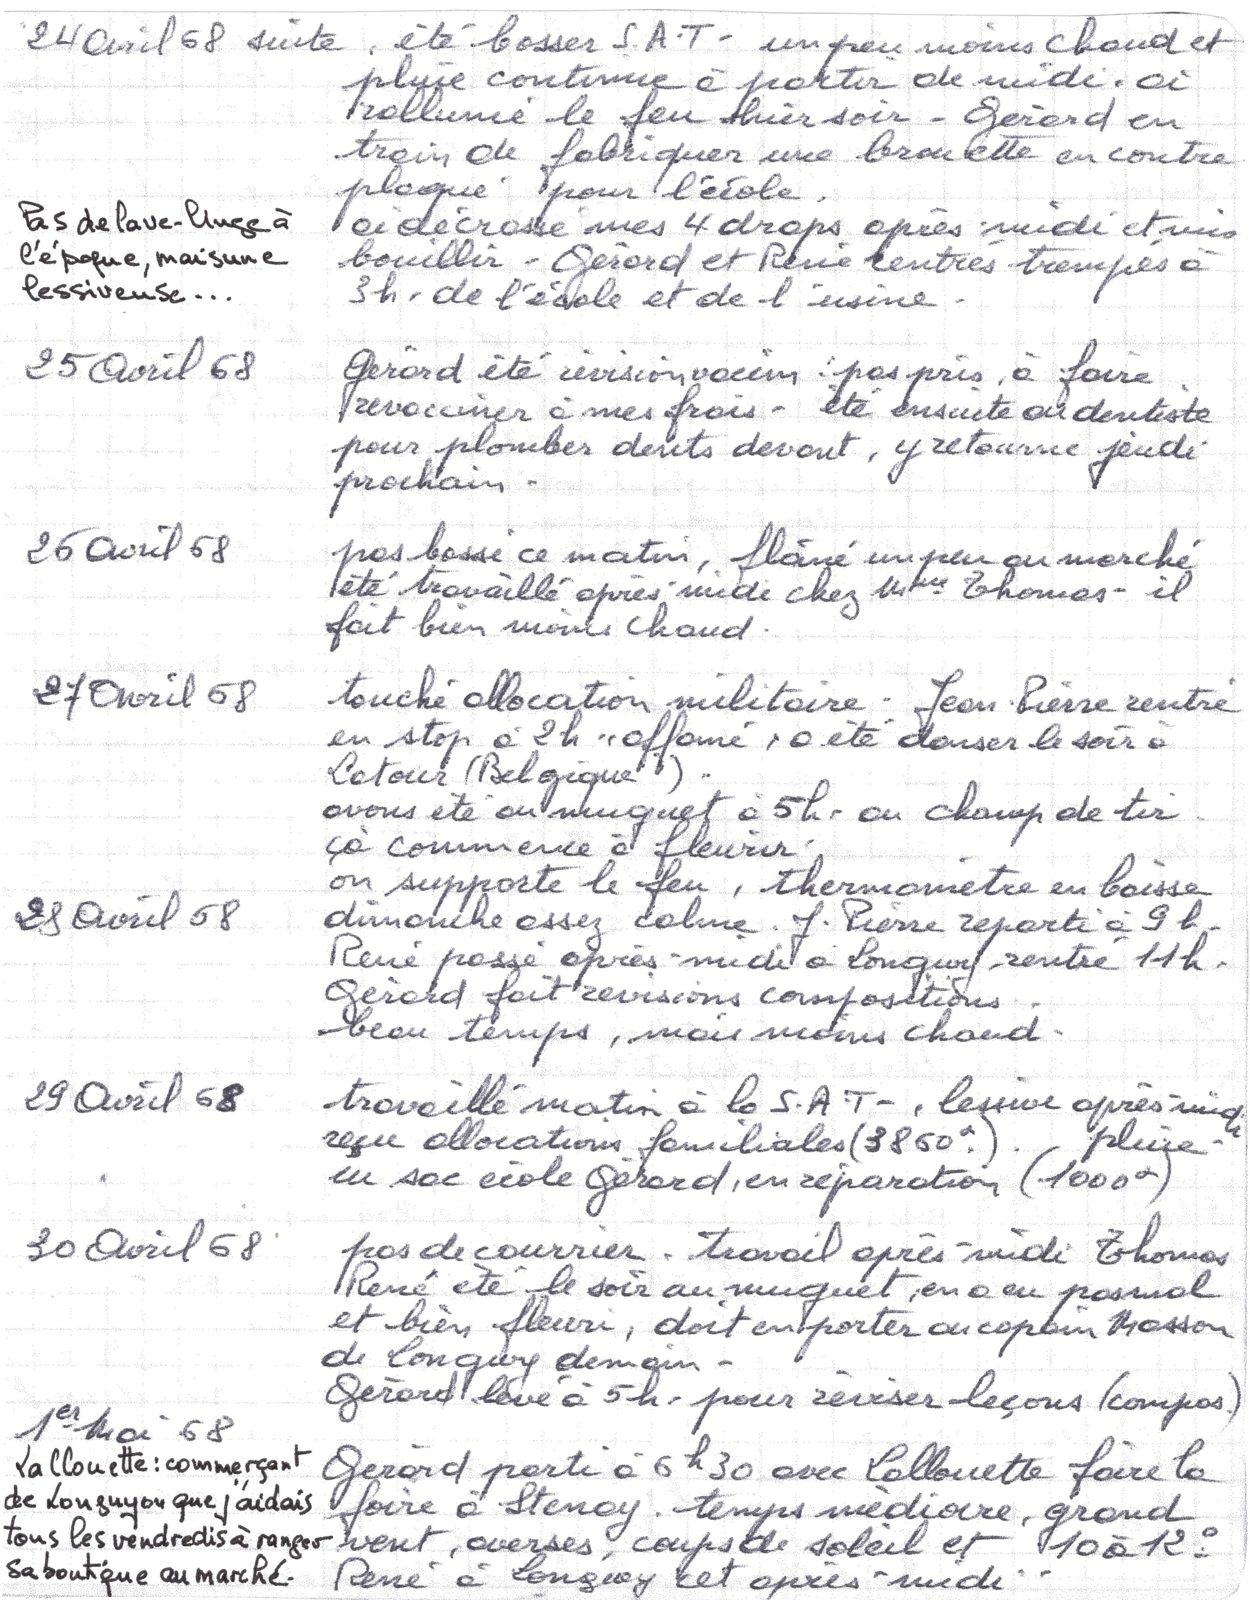 24 Avril 68 suite, été bosser S.A.T- un peu moins chaud et
pluie continue à partir de midi. ai
rallumé le feu hier soir - Gérard en
train de fabriquer une brouette en contre
plaqué pour l'école.
Pas de lave-linge à
l'époque, mais une
lessiveuse...
ai décrassé mes 4 draps après-midi et mis
bouillir - Gérard et René rentrés trempés à
3h. de l'école et de l'usine.
25 Avril 68
Gérard été révision vaccin : pas pris, à faire
revacciner à mes frais - été ensuite au dentiste
pour plomber dents devant, y retourne jeudi
prochain -
26 Avril 68
pas bossé ce matin, flâné un peu au marché
été travaillé après-midi chez Mme Thomas - il
fait bien moins chaud.
27 Avril 68
touché allocation militaire - Jean-Pierre rentré
en stop à 2h "affamé, a été danser le soir à
Latour (Belgique).
avons été au muguet à 5h. au champ de tir
çà commence à fleurir.
on supporte le feu, thermomètre en baisse
28 Avril 68
dimanche assez calme. J. Pierre reparti à 9h.
René passé après-midi à Longwy, rentré 11h.
Gérard fait révisions compositions.
beau temps, mais moins chaud.
29 Avril 68
travaillé matin à la S.A.T-, lessive après-midi
reçu allocations familiales (3860 ). pluie -
sac école Gérard, en réparation (1000 )
30 Avril 68
pas de courrier. travail après-midi Thomas
René été le soir au muguet, en a eu pas mal
et bien fleuri, doit en porter au copain Masson
de Longwy demain -
Gérard levé à 5h. pour réviser leçons (compos.)
1er Mai 68
Lallouette : commerçant
de Longuyon que j'aidais
tous les vendredis à ranger
sa boutique au marché.
Gérard parti à 6h30 avec Lallouette faire la
foire à Stenay. temps médiocre, grand
vent, averses, coups de soleil et 10 à 12°.
René à Longwy cet après-midi..